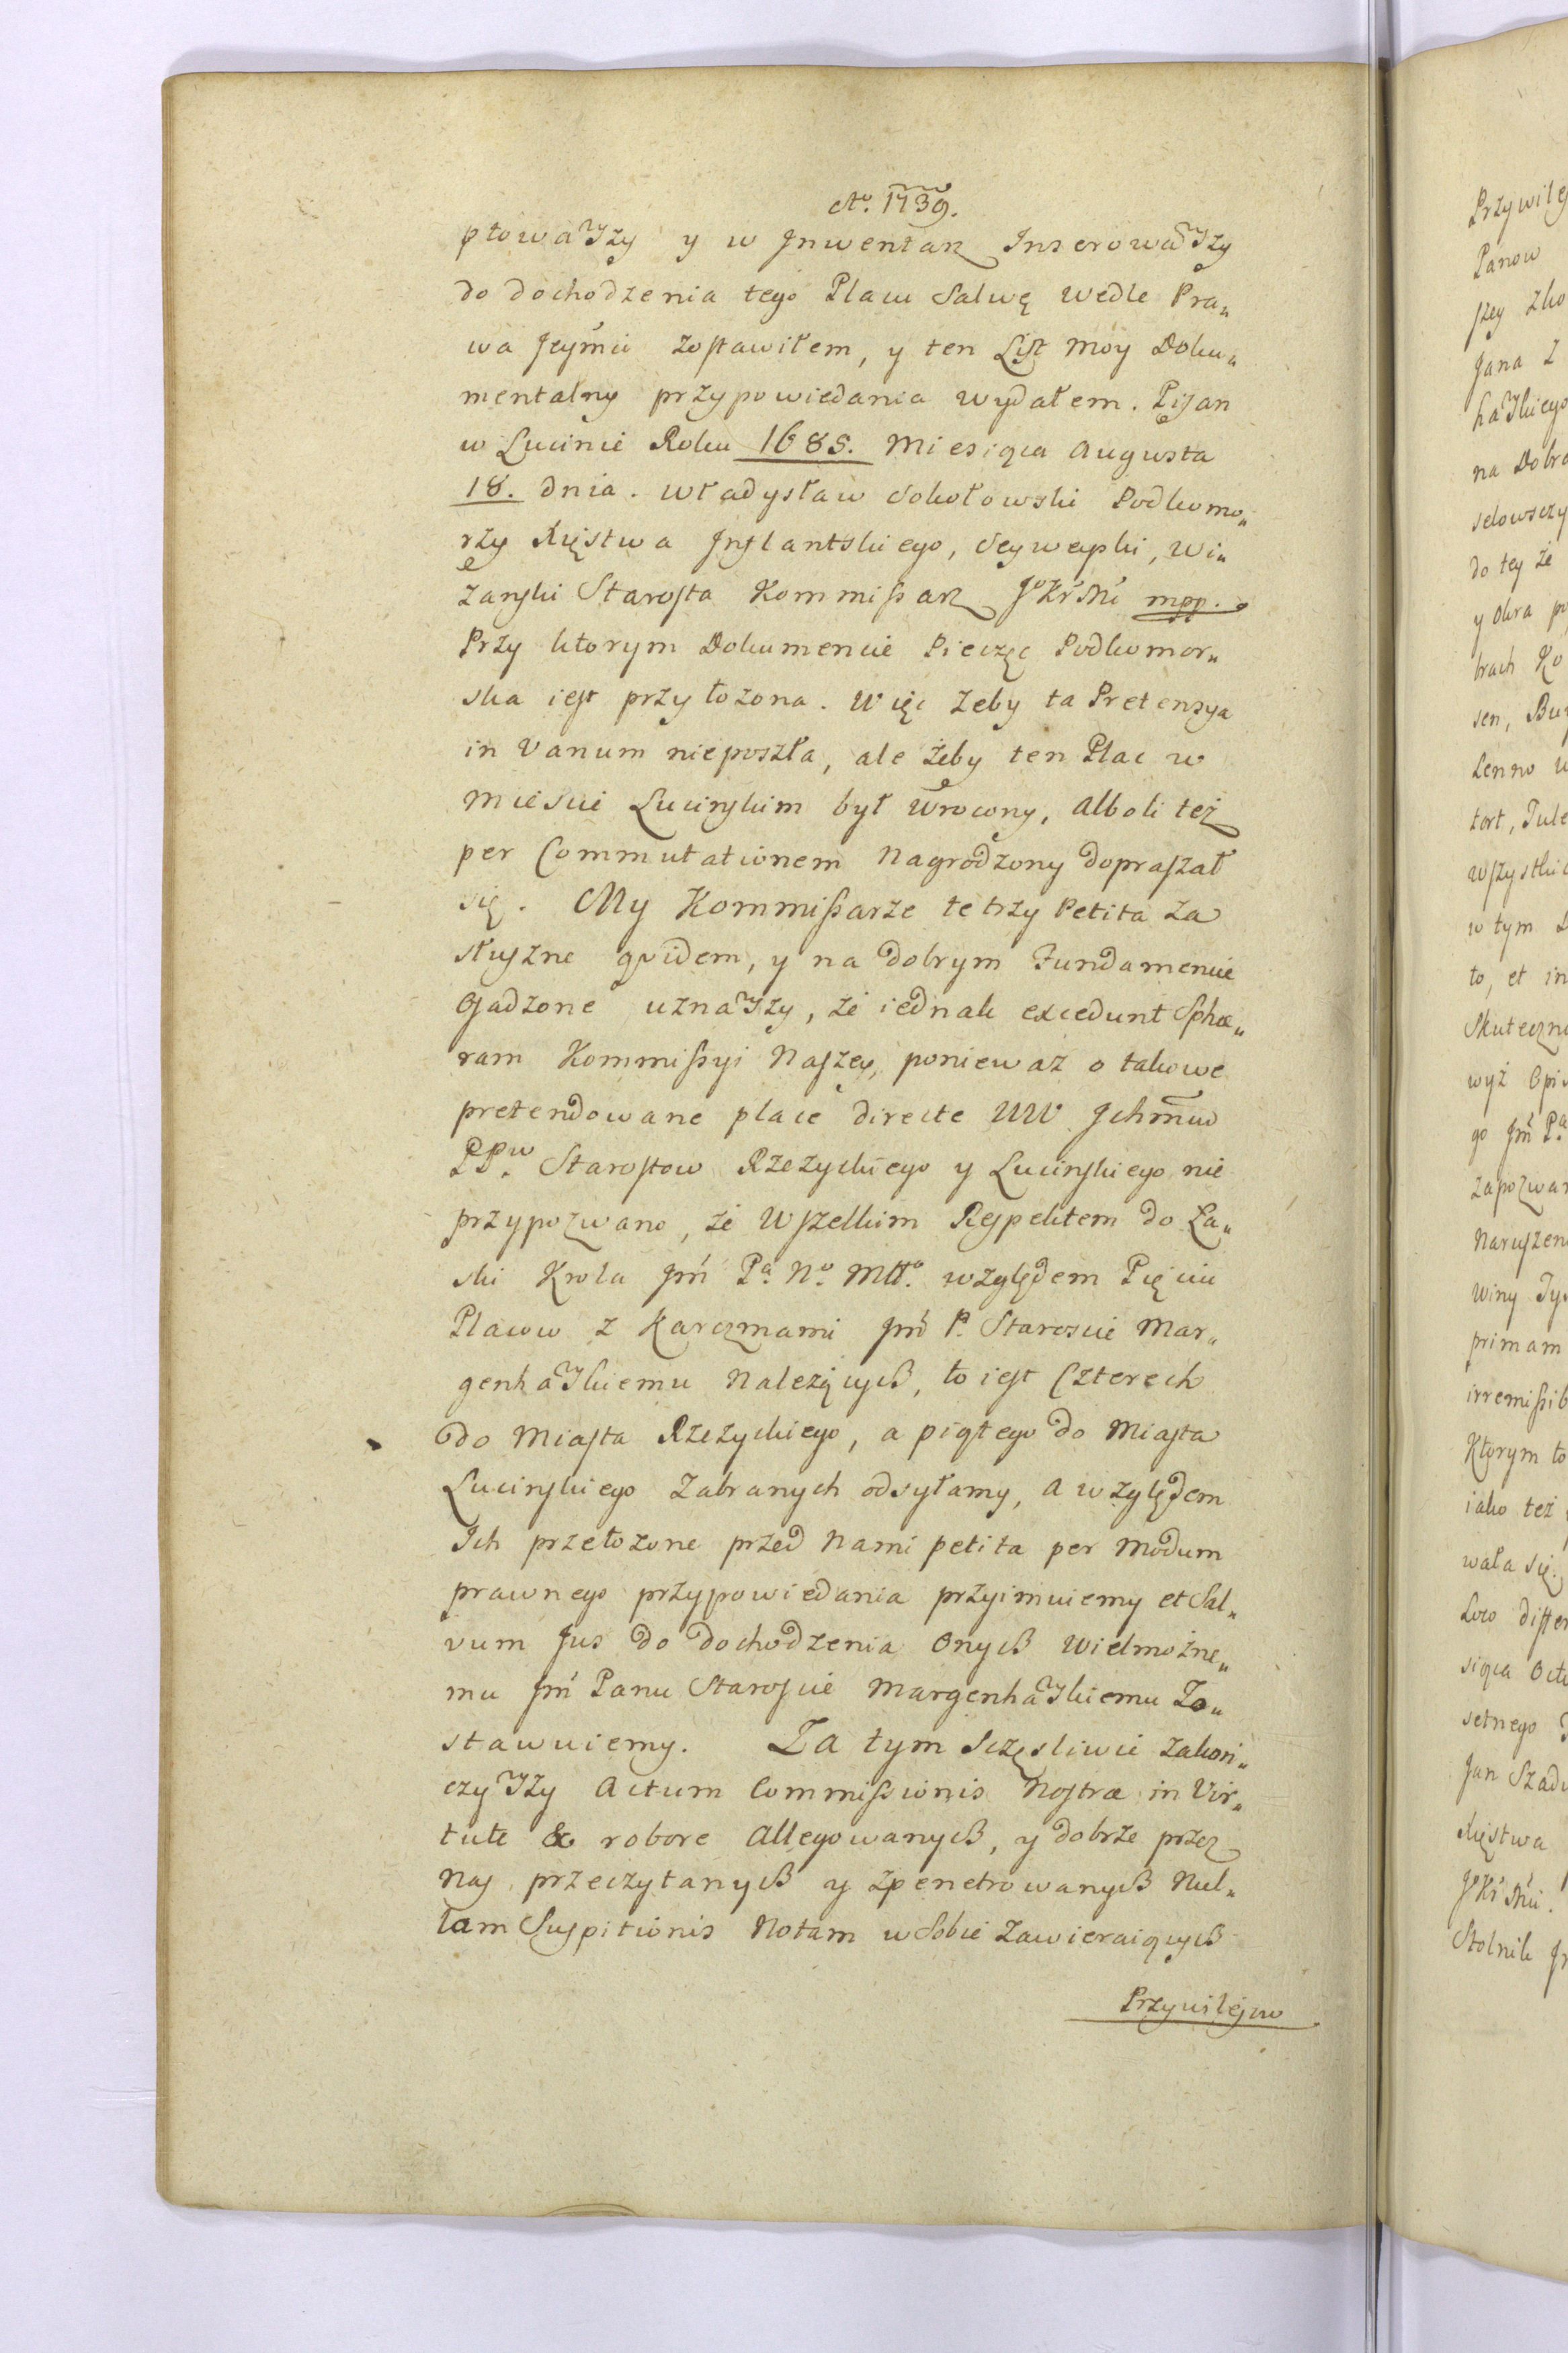 Ao. 1739.
ptowaszy y w Jnwentarz Inserowaszy
do dochodzenia tego Placu Salwę wedle Pra„
wa Jeymci zostawiłem, y ten List moy Doku„
mentalny przypowiedania wydałem. Pisan
w Lucinie Roku 1685. Miesiąca Augusta
18. dnia. Władysław Sokołowski Podkomo„
rzy Xięstwa Jnflantskiego, Seyweyski, Wi„
zanski Starosta Kommissarz Jo Kr Mci mpp.
Przy ktorym Dokumencie Pieczęc Podkomor„
ska iest przyłozona. Więc zeby ta Pretensya
in Vanum nieposzła, ale żeby ten Plac w
Miescie Lucinskim był wrocony, alboli też
per Commutationem Nagrodzony dopraszał
się. My Kommissarze te trzy Petita za
słuszne qvidem, y na dobrym Fundamencie
Osadzone uznaszy, że iednak excedunt Sphæ„
ram Kommissyi Naszey, poniewaz o takowe
pretendowane place directe WW Jchmciow
PPw. Starostow Rzezyckiego y Lucinskiego nie
przypozwano, że Wszelkim Respektem do Ła„
ski Krola Jm Pa. No. Mtto. względem Pięciu
Placow z Karczmami Jm P. Staroscie Mar„
genhaskiemu Należących, to iest Czterech
do Miasta Rzezyckiego, a piątego do Miasta
Lucinskiego zabranych odsyłamy, a względem
Ich przełozone przed Nami petita per modum
prawnego przypowiedania przyimuiemy et Sal„
vum Jus do dochodzenia Onych Wielmożne„
mu Jm Panu Staroscie Margenhaskiemu Zo„
stawuiemy. Za tym Sczęsliwie zakoń„
czyszy Actum Commissionis Nostræ in Vir„
tute & robore Allegowanych, y dobrze przez
Nas przeczytanych y zpenetrowanych Nul„
lam Suspitionis Notam w Sobie zawieraiących
Przywilejow